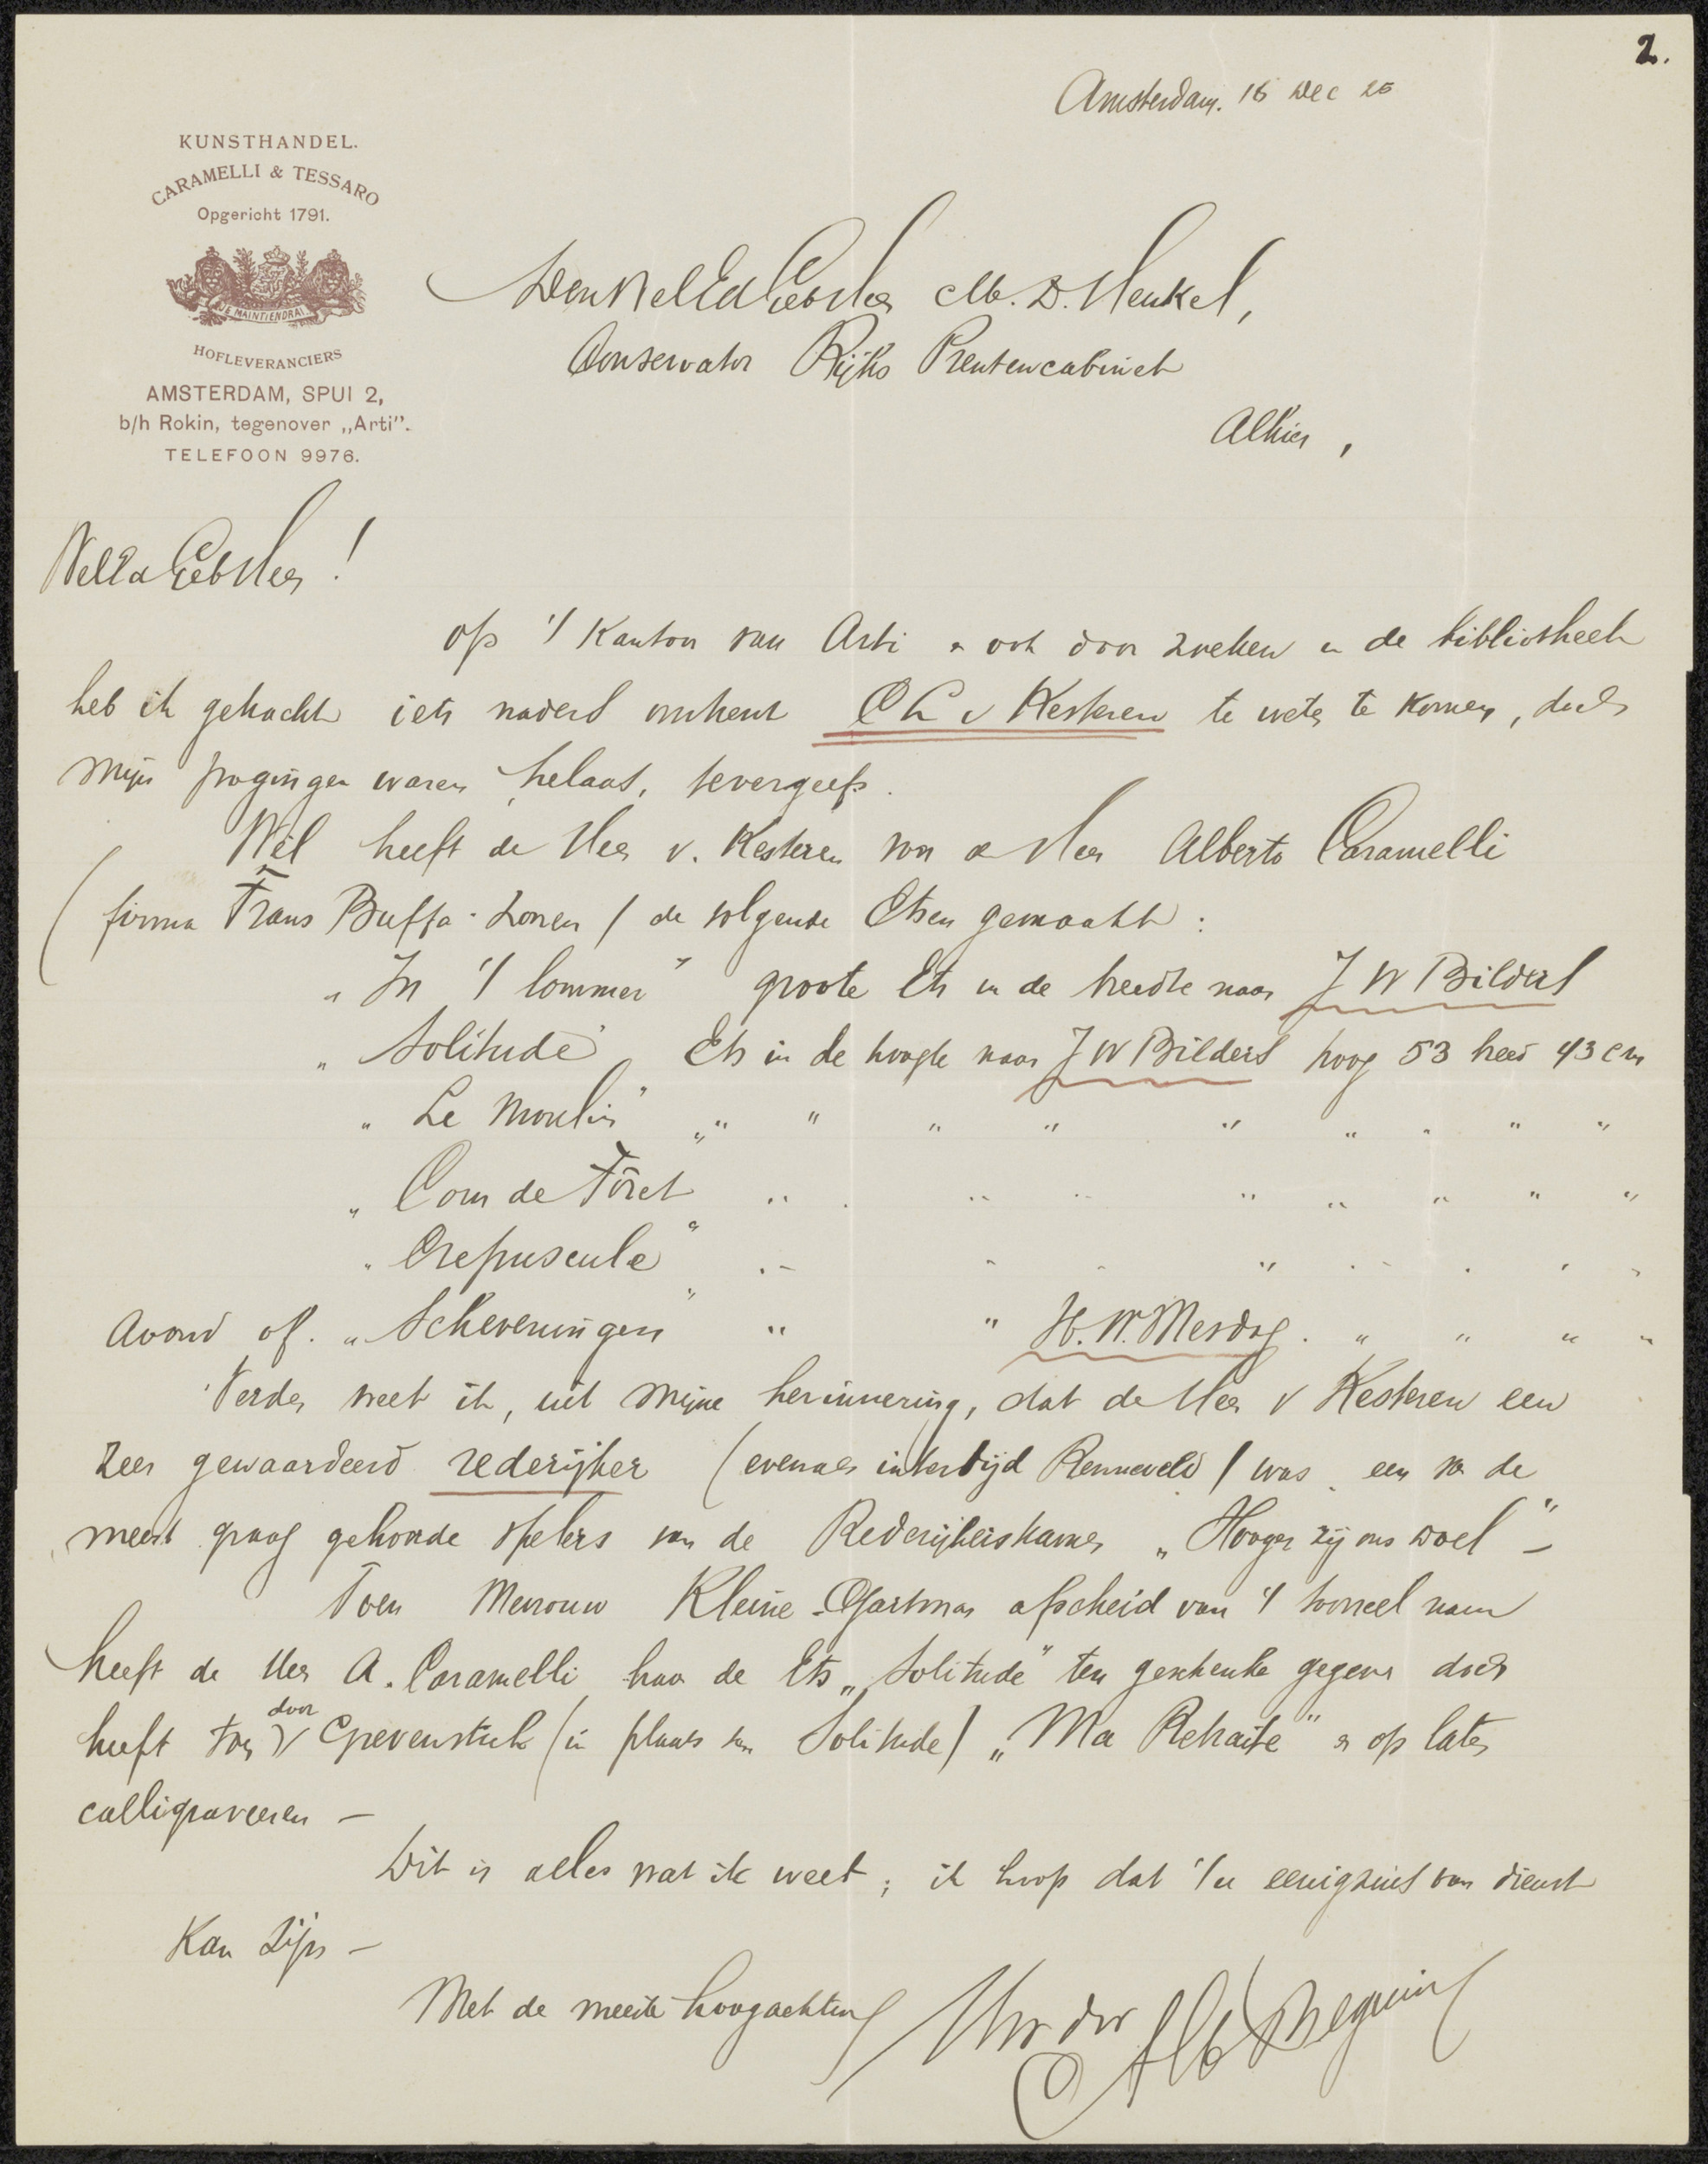 2.
Amsterdam. 16 Dec 25
KUNSTHANDEL.
CARAMELLI & TESSARO
Opgericht 1791.
JE MAINTIENDRAI
HOFLEVERANCIERS
AMSTERDAM, SPUI 2,
b/h Rokin, tegenover „Arti”.
TELEFOON 9976.
Den WelEdGebHeer M. D. Henkel,
Conservator Rijks Prentencabinet
Alhier,
WelEdGebHeer!
Op 't Kantoor van Arti en ook door zoeken in de bibliotheek
heb ik getracht iets naders omtrent Ch v Kesteren te weten te komen, doch
mijn pogingen waren, helaas, tevergeefs.
Wèl heeft de Heer v. Kesteren voor de Heer Alberto Caramelli
(firma Frans Buffa & Zonen) de volgende Etsen gemaakt:
„In 't lommer" groote Ets in de breedte naar J W Bilders
„Solitude" Ets in de hoogte naar J W Bilders hoog 53 breed 43 cm
„Le Moulin" „ " " " " " " " " "
„Coin de Fôret " " " " " " " " "
„Crepuscule" " " " " " " " "
Avond of. „Scheveningen" " " H. W. Mesdag. " " " "
Verder weet ik, uit mijne herinnering, dat de Heer v Kesteren een
zeer gewaardeerd rederijker (evenals indertijd Renneveld) was, een van de
meest graag gehoorde spelers van de Rederijkerskamer „Hooger zij ons doel" –
Toen Mevrouw Kleine-Gartman afscheid van 't tooneel nam
heeft de Heer A. Caramelli haar de Ets „Solitude" ten geschenke gegeven doch
heeft toen door v Grevenstuk (in plaats van Solitude) „Ma Retraite" er op laten
calligraveeren –
Dit is alles wat ik weet; ik hoop dat 't u eenigzins van dienst
Kan Zijn –
Met de meeste hoogachting
Uw dw
Alb Beguin